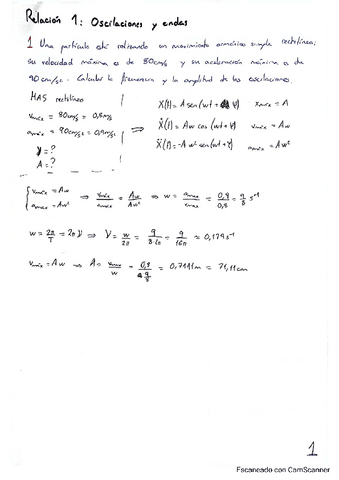 Relación 1: Oscilaciones y ondas
1 Una partícula está realizando un movimiento armónico simple rectilíneo;
su velocidad máxima es de 80cm/s y su aceleración máxima es de
90cm/s². Calcular la frecuencia y la amplitud de las oscilaciones.
MAS rectilíneo
vmáx = 80cm/s = 0,8m/s
amáx = 90cm/s² = 0,9m/s²
ν = ?
A = ?
⇒
X(t) = A sen(ωt + φ) xmáx = A
Ẋ(t) = Aω cos(ωt + φ) vmáx = Aω
Ẍ(t) = -Aω² sen(ωt + φ) amáx = Aω²
{vmáx = Aω
amáx = Aω² ⇒ vmáx/amáx = Aω/Aω² ⇒ ω = amax/vmax = 0,9/0,8 = 9/8 s⁻¹
ω = 2π/T = 2πν ⇒ ν = ω/2π = 9/8·2π = 9/16π = 0,179 s⁻¹
vmáx = Aω ⇒ A = vmax/ω = 0,8/(9/8) = 0,7111m = 71,11cm
1
Escaneado con CamScanner